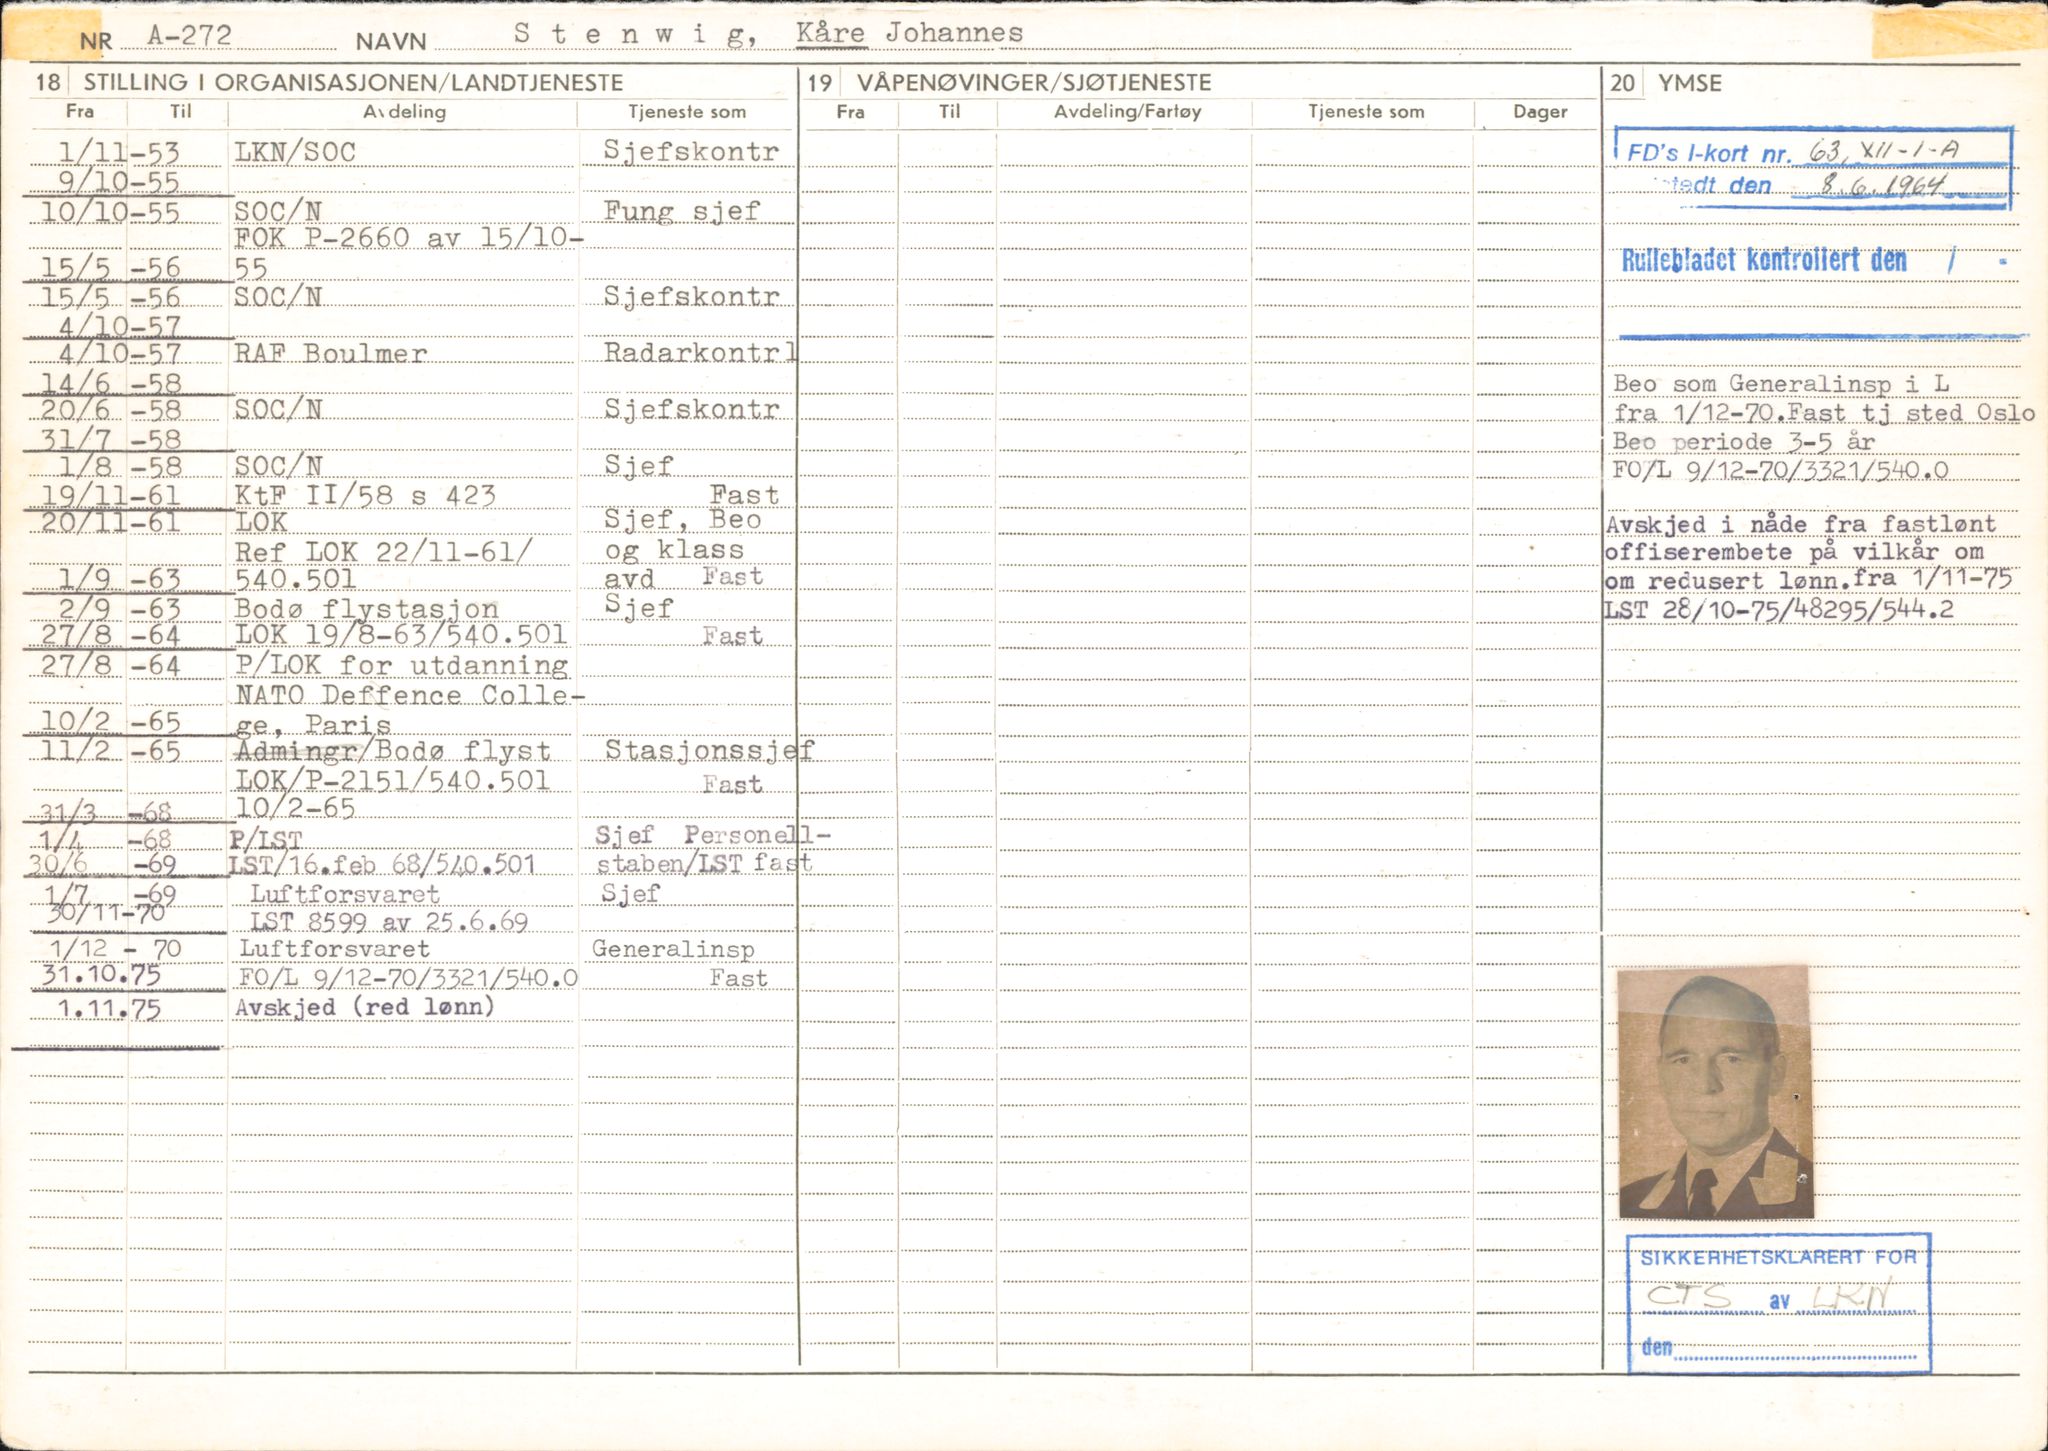 NR A-272 NAVN S t e n w i g, Kåre Johannes
18 STILLING I ORGANISASJONEN/LANDTJENESTE
Fra Til Avdeling Tjeneste som
1/11-53 LKN/SOC Sjefskontr
9/10-55
10/10-55 SOC/N Fung sjef
FOK P-2660 av 15/10-
15/5 -56 55
15/5 -56 SOC/N Sjefskontr
4/10-57
4/10-57 RAF Boulmer Radarkontrl
14/6 -58
20/6 -58 SOC/N Sjefskontr
31/7 -58
1/8 -58 SOC/N Sjef
19/11-61 KtF II/58 s 423 Fast
20/11-61 LOK Sjef, Beo
Ref LOK 22/11-61/ og klass
1/9 -63 540.501 avd Fast
2/9 -63 Bodø flystasjon Sjef
27/8 -64 LOK 19/8-63/540.501 Fast
27/8 -64 P/LOK for utdanning
NATO Deffence Colle-
10/2 -65 ge, Paris
11/2 -65 Admingr/Bodø flyst Stasjonssjef
LOK/P-2151/540.501 Fast
31/3 -68 10/2-65
1/4 -68 P/LST Sjef Personell-
30/6 -69 LST/16.feb 68/540.501 staben/LST fast
1/7 -69 Luftforsvaret Sjef
30/11-70 LST 8599 av 25.6.69
1/12 - 70 Luftforsvaret Generalinsp
31.10.75 FO/L 9/12-70/3321/540.0 Fast
1.11.75 Avskjed (red lønn)
19 VÅPENØVINGER/SJØTJENESTE
Fra Til Avdeling/Fartøy Tjeneste som Dager
20 YMSE
FD's I-kort nr. 63, XII-1-A
stedt den 8.6.1964
Rullebladet kontrollert den / -
Beo som Generalinsp i L
fra 1/12-70.Fast tj sted Oslo
Beo periode 3-5 år
FO/L 9/12-70/3321/540.0
Avskjed i nåde fra fastlønt
offiserembete på vilkår om
om redusert lønn.fra 1/11-75
LST 28/10-75/48295/544.2
SIKKERHETSKLARERT FOR
CTS av LKN
den